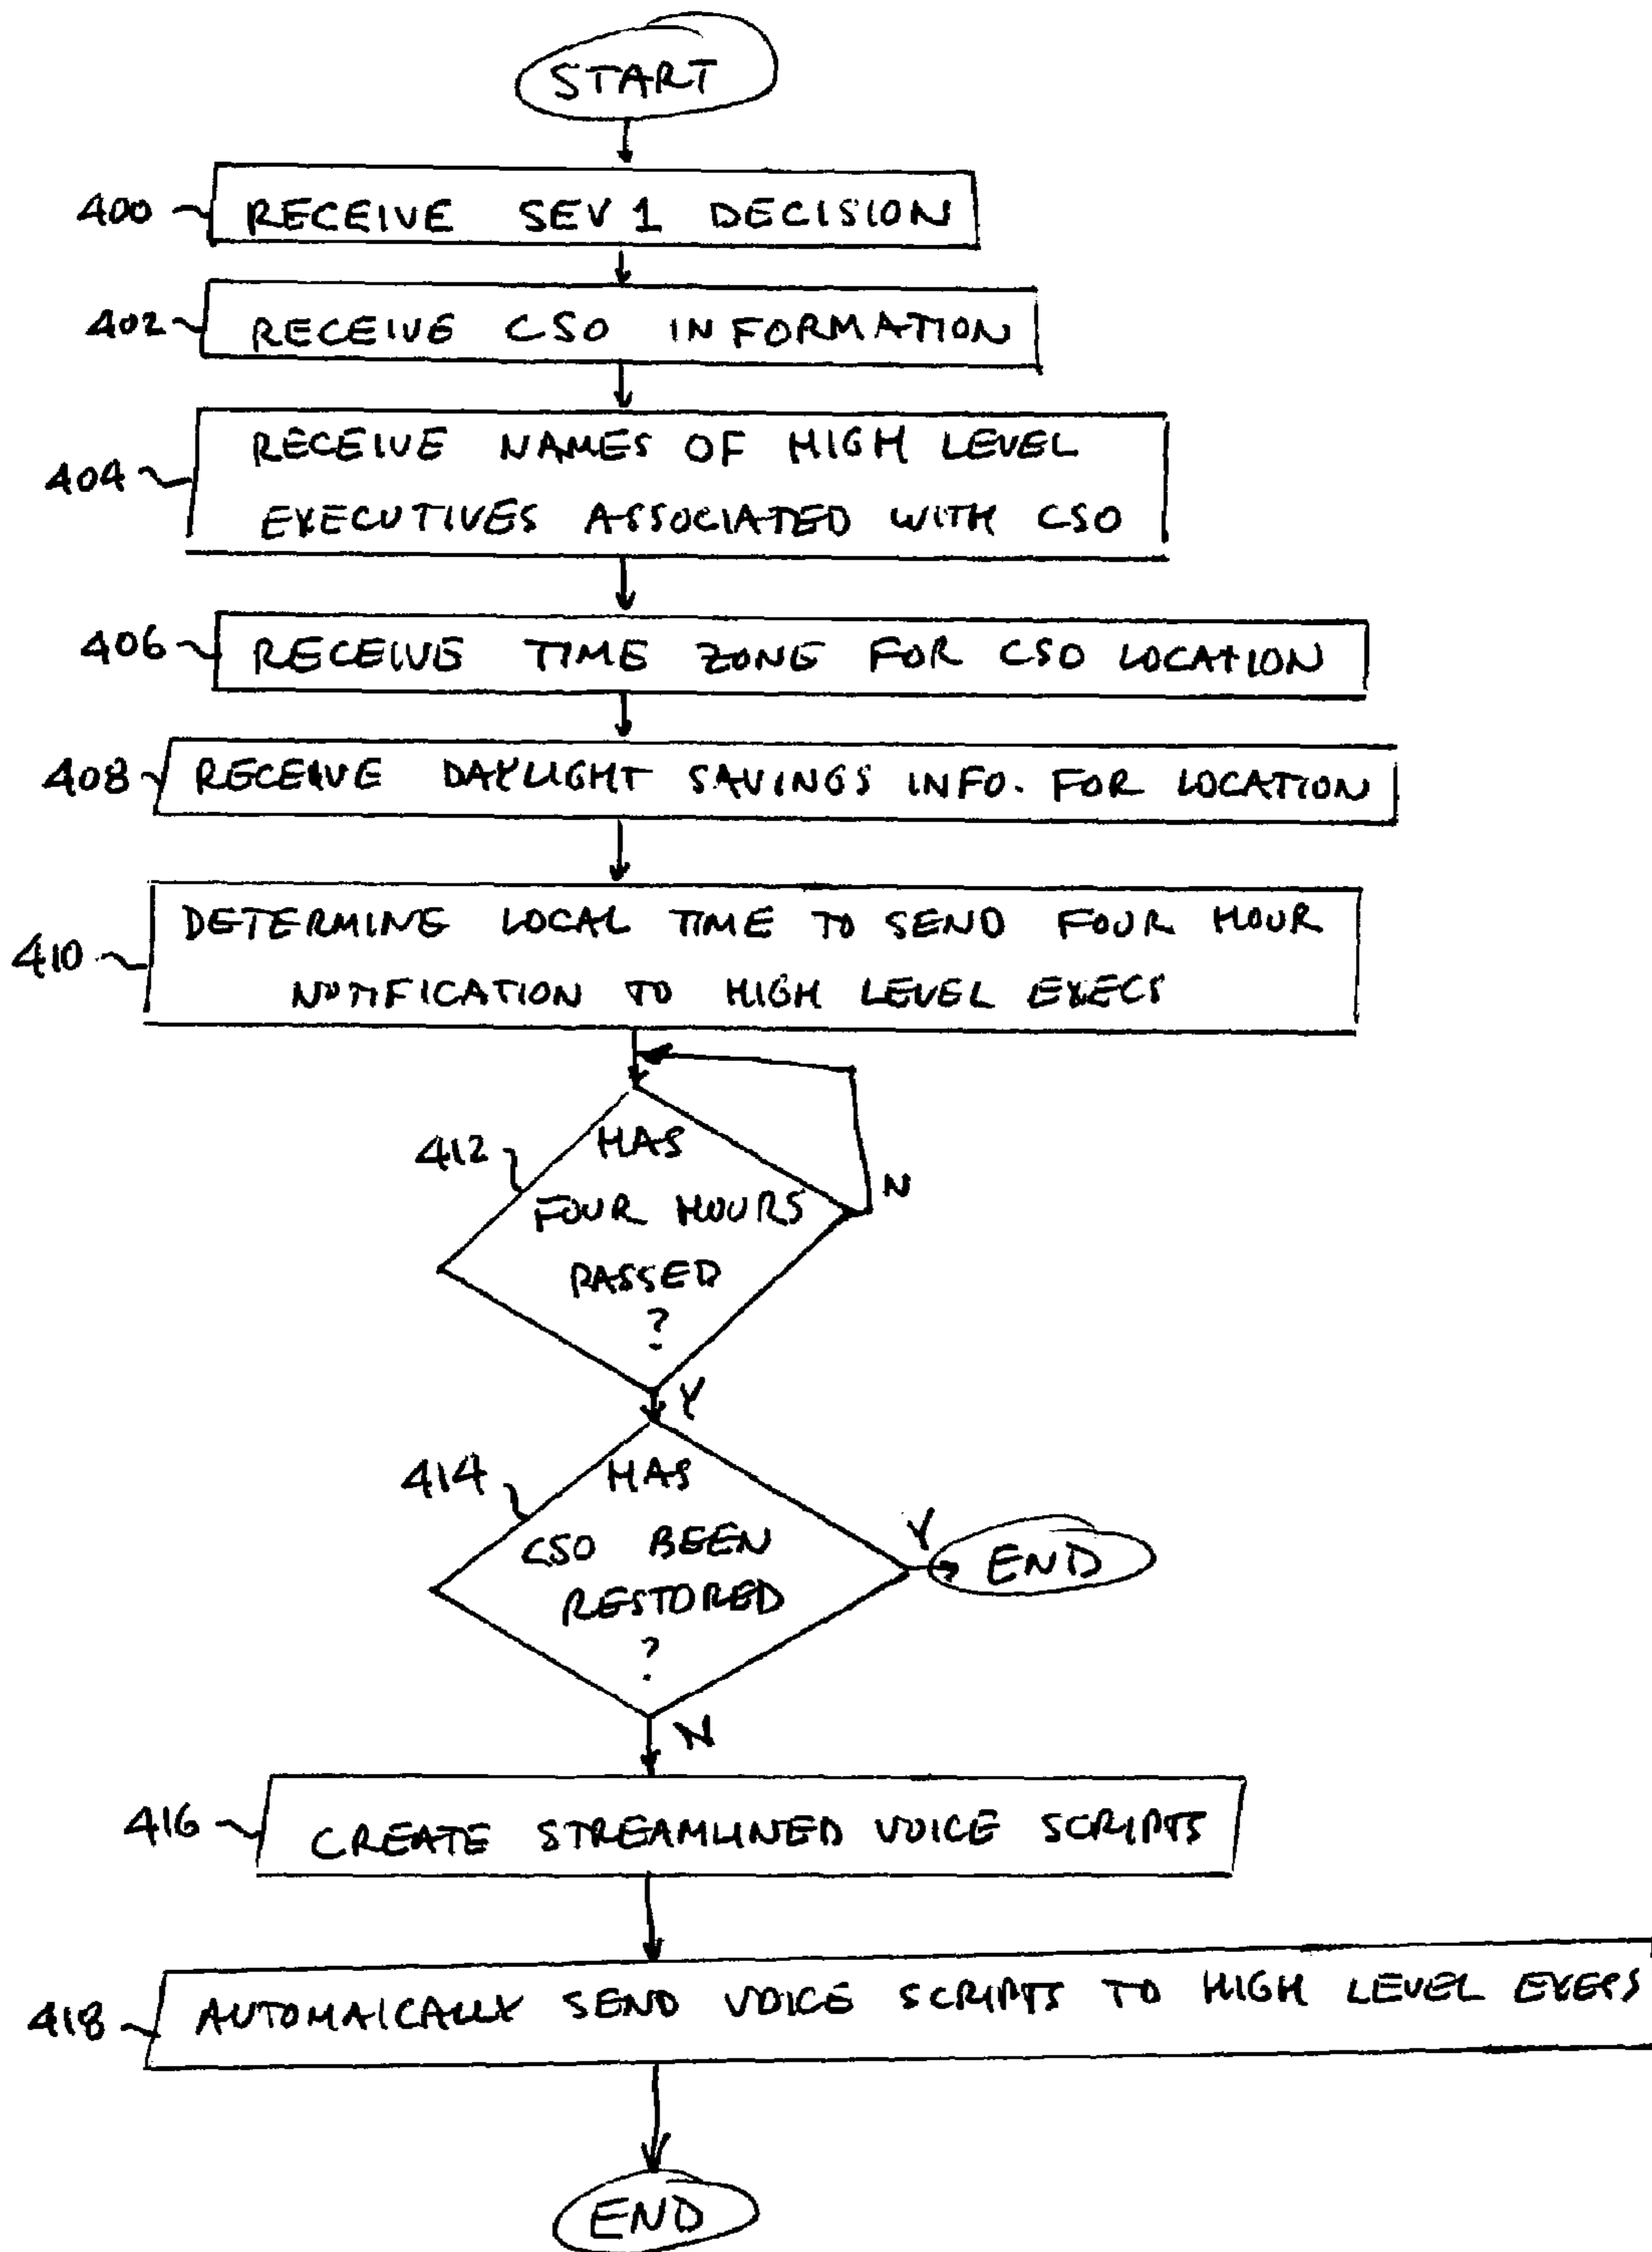 START
400 RECEIVE SEV 1 DECISION
402 RECEIVE CSO INFORMATION
RECEIVE NAMES OF HIGH LEVEL
404
EXECUTIVES ASSOCIATED WITH CSO
406 RECEIVE TIME ZONE FOR CSO LOCATION
408 RECEIVE DAYLIGHT SAVINGS INFO. FOR LOCATION
DETERMINE LOCAL TIME TO SEND FOUR HOUR
410
NOTIFICATION TO HIGH LEVEL EXECS
412 HAS
FOUR HOURS
N
PASSED
?
Y
414 HAS
CSO BEEN
RESTORED
?
Y
END
N
416 CREATE STREAMLINED VOICE SCRIPTS
418 AUTOMAICALLY SEND VOICE SCRIPTS TO HIGH LEVEL EXECS
END